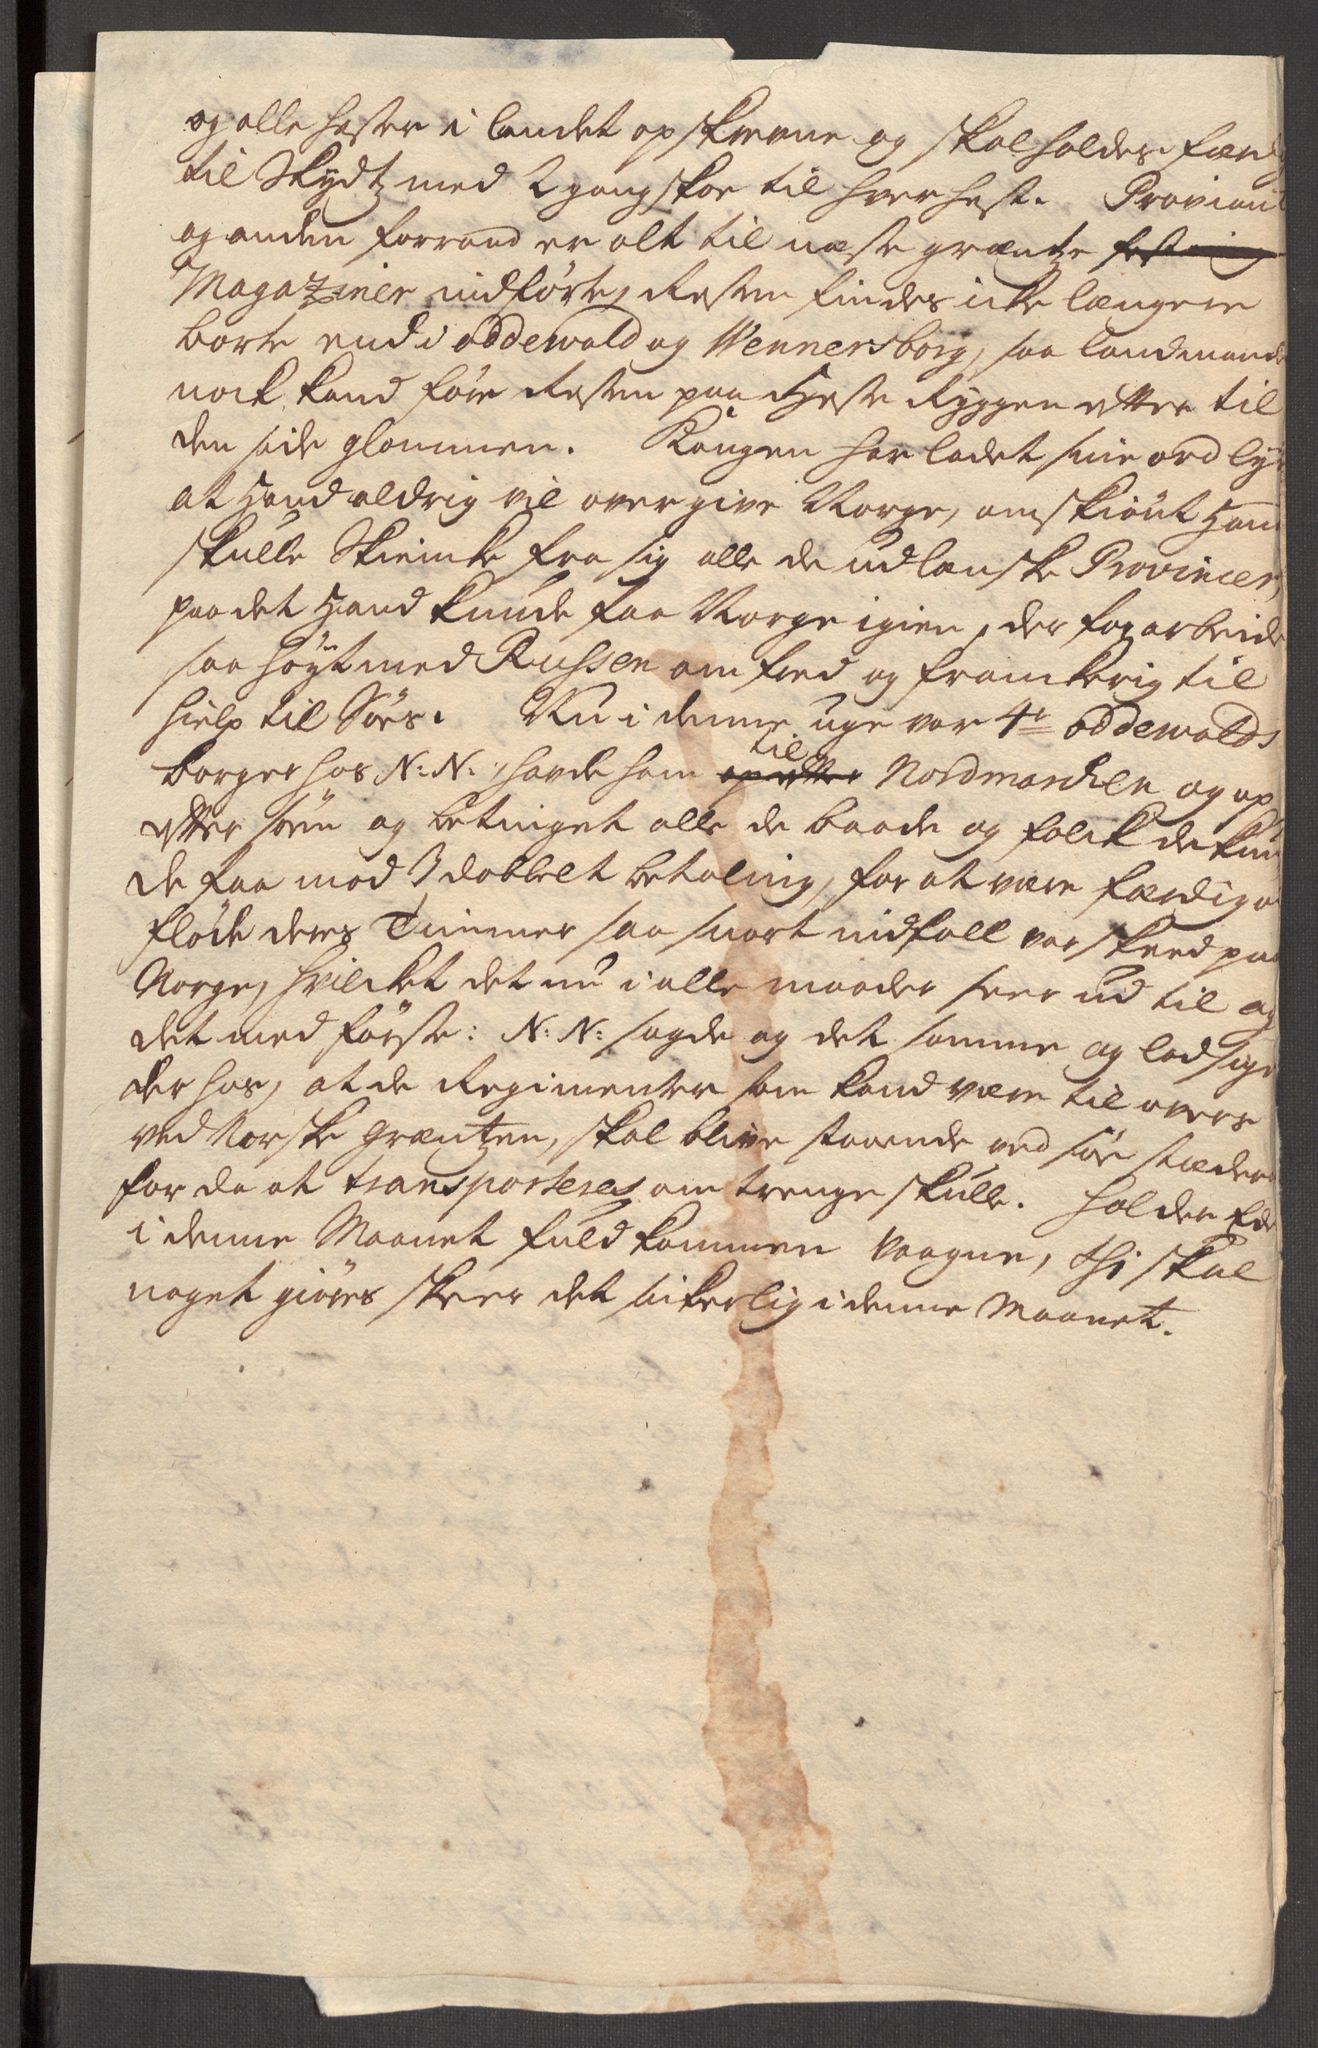 og alle hester i landet opskrevne og skal holdes færdig
til Skydtz med 2 gangskoe til hver hest. Proviant
og anden forraad er alt til neste græntze festning
Magaziner nidførte, Resten findes icke længere
borte end i oddewald og Wennersborg, saa landmanden
nock kand føre Resten paa Heste Ryggen etter til
den side glommen. Kongen har ladet sine ord lyde
at Hand aldrig vil overgive Norge, omskiønt Hand
skulle Skiencke fra sig alle de udlanske Provincer,
paa det Hand kunde faa Norge igien, derfor arbeides
saa høyt med Russen om fred og franckerig til
hielp til Søes. Nu i denne uge var 4re oddewalds
borger hos N: N: , havde ham op etter til Nordmarcken og op
etter søen og betinget alle de baade og folck de kun
de faa mod 3 dobbelt betaling, for at være færdig at
fløde deres Timmer saa snart nidfall var skeed paa
Norge, hvilcket det nu i alle maader seer ud til og
det med første: N: N: sagde og det samme og lod sige
der hos, at de Regimenter som kand være til overs
ved Norske Græntzen, skal blive staaende ved søe stæderne
for da at transporteres om trenge skulle. holder Eder
i denne Maanet fuldkommen vaagne, thi skal
noget giøres skeer det sickerlig i denne Maanet.